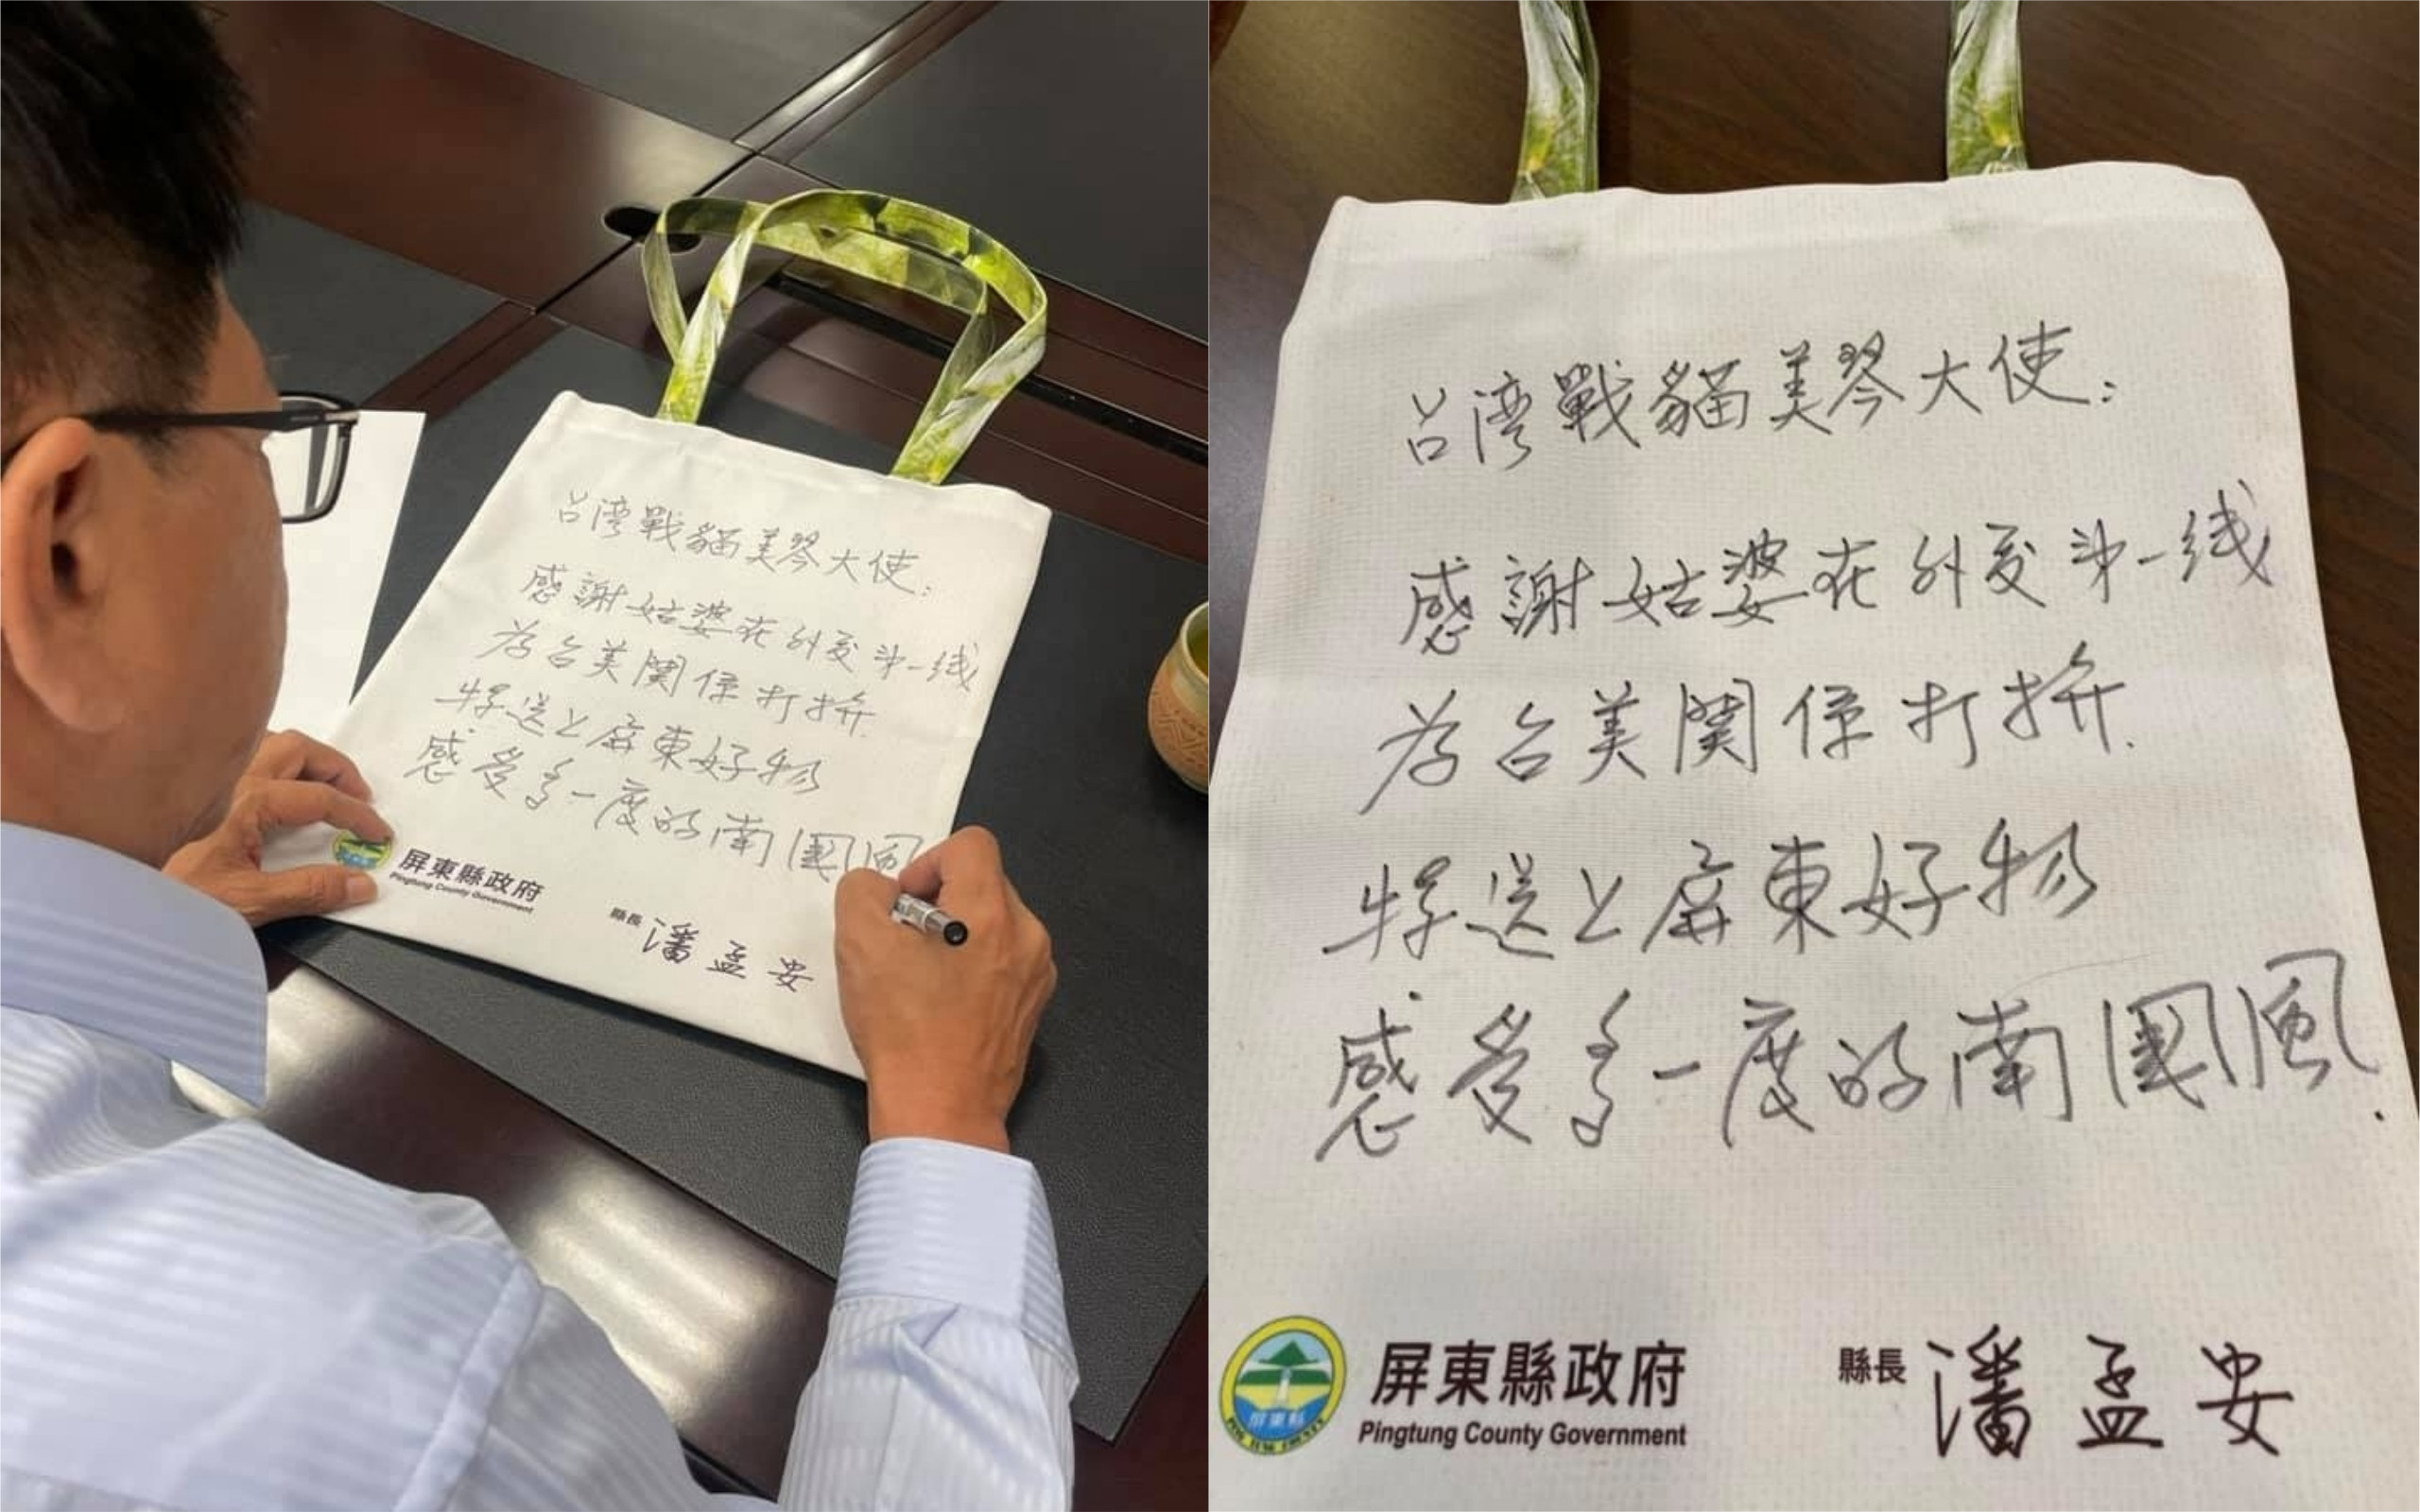 台湾戰貓美琴大使:
感謝姑婆在外交第一线
為台美関係打拚.
特送上屏東好物
感受多一度的南國風
屏東縣政府
Pingtung County Government
縣長 潘孟安
台湾戰貓美琴大使:
感謝姑婆在外交第一线
為台美関係打拚.
特送上屏東好物
感受多一度的南國風.
屏東縣
屏東縣政府
Pingtung County Government
縣長 潘孟安